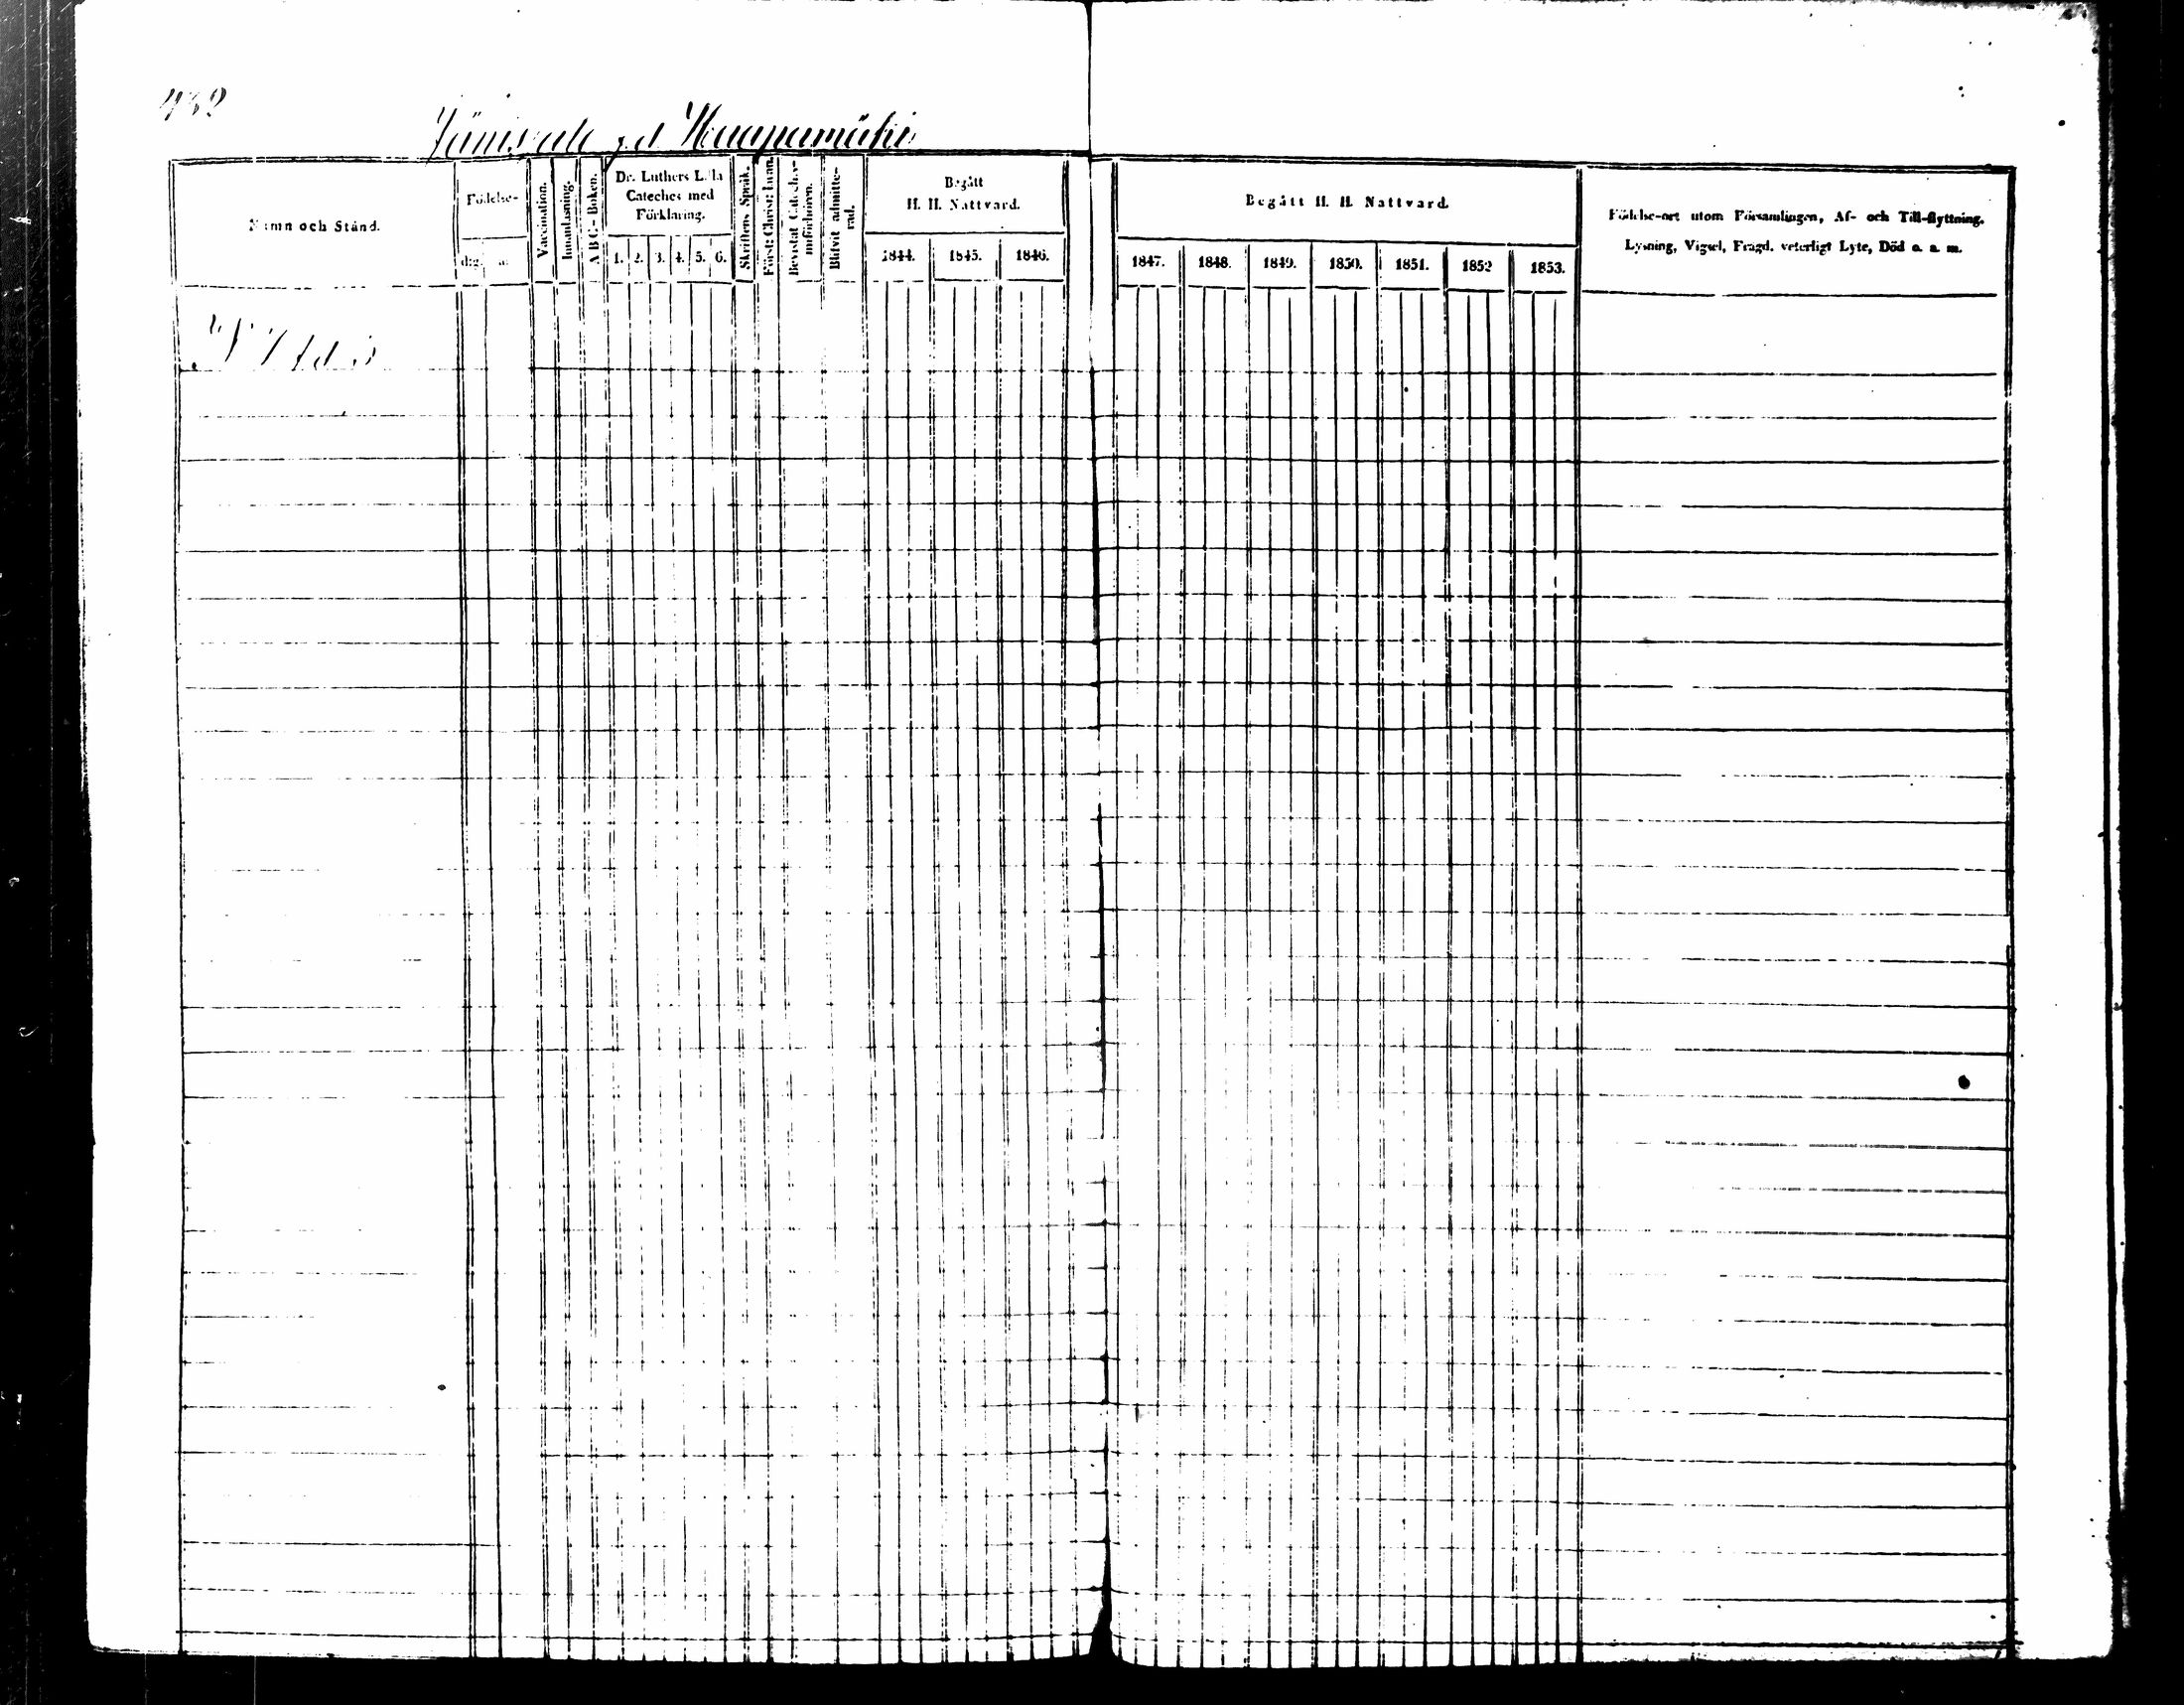 432
Namn och Stånd.
Födelse-
dag.
Vaccination.
Innanläsning.
A B C - Boken.
Dr. Luthers Lilla
Cateches med
Förklaring.
1. 2. 3. 4. 5. 6.
Skriftens Språk.
Bevistat Catechis-
miförhören.
Blifvit admitte-
rad.
Begått
H. H. Nattvard.
1844. 1845. 1846.
Begått H. H. Nattvard.
1847. 1848. 1849. 1850. 1851. 1852 1853.
Födelse-ort utom Församlingen, Af- och Till-flyttning.
Lysning, Vigsel, Fragd. veterligt Lyte, Död o. a. m.